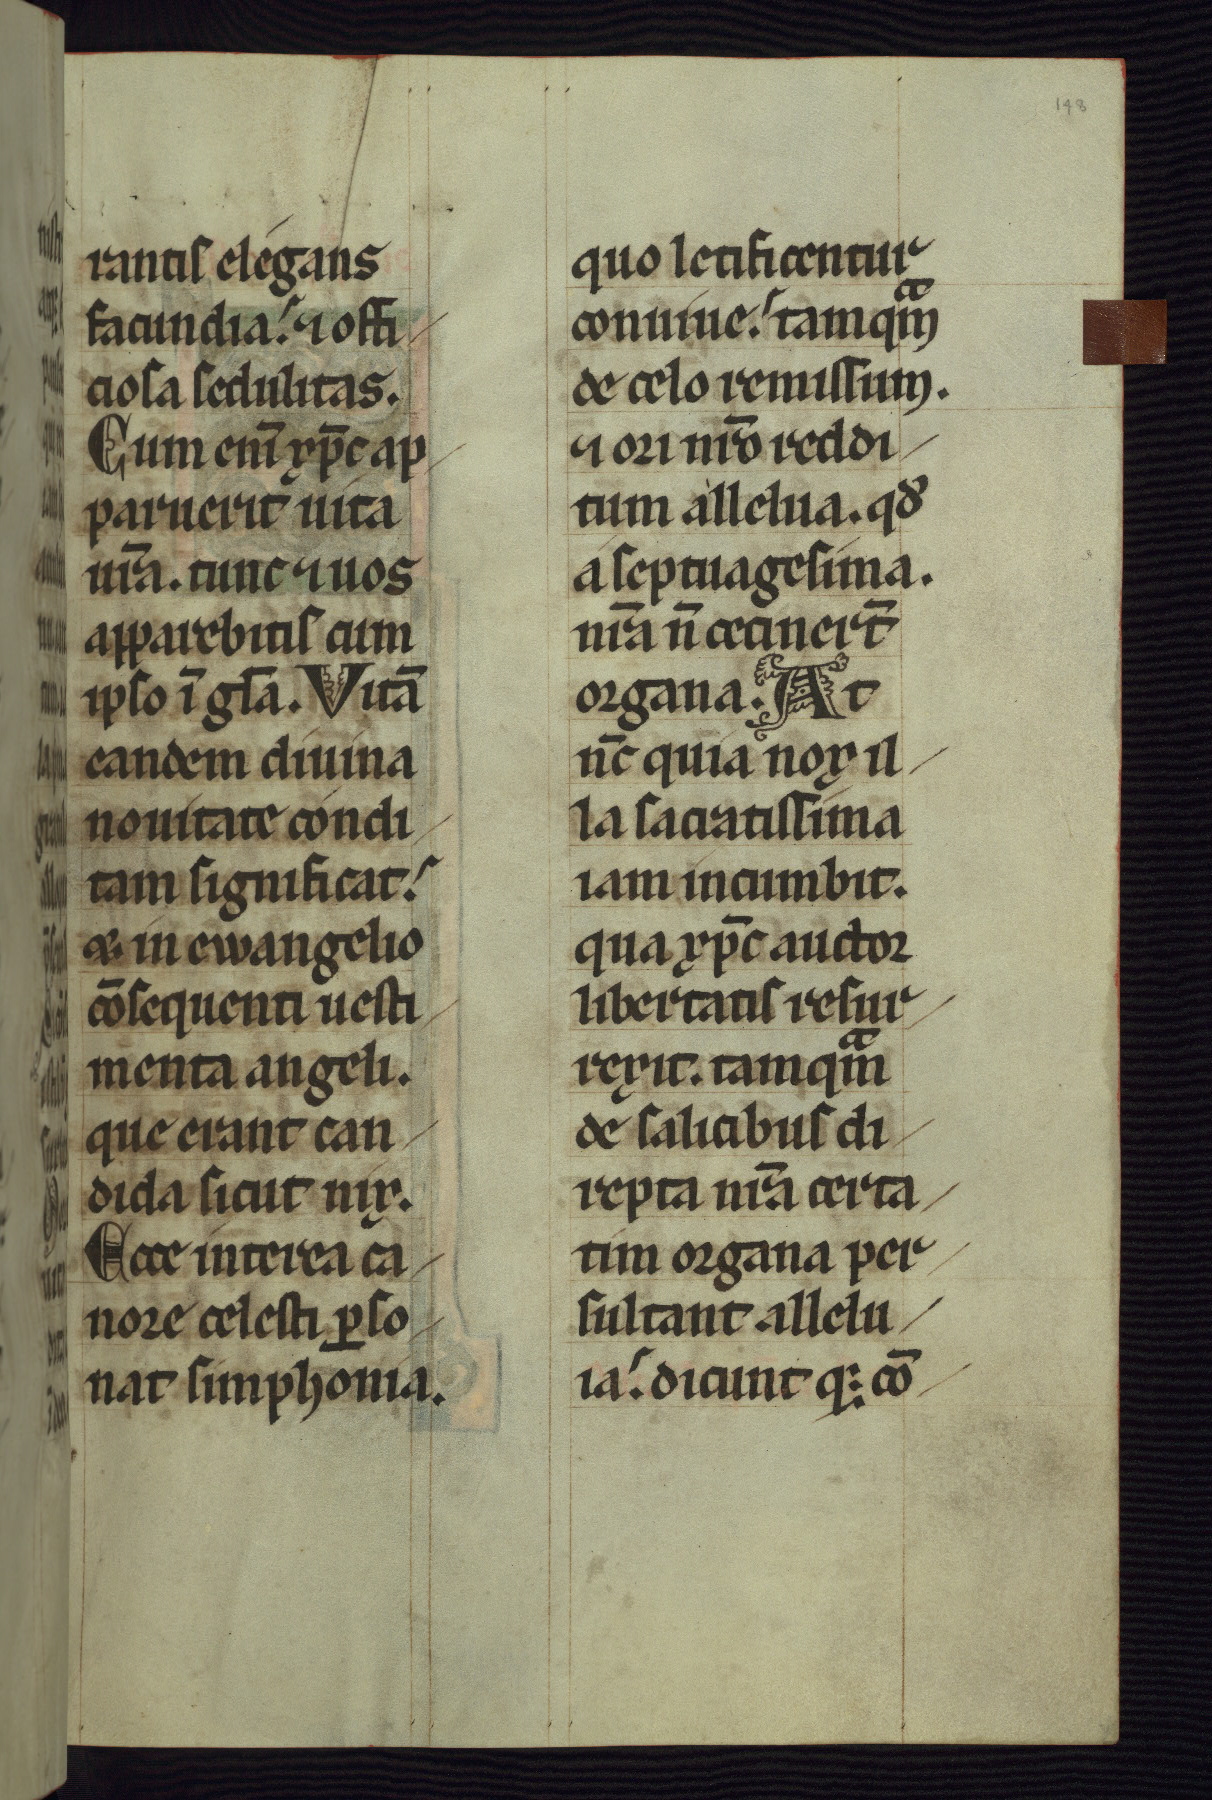 148
rantiſ elegans
facundia. ⁊ offi
cioſa ſedulitas.
Cum enī xp̄c ap
paruerit uita
ur̄a. tunc ⁊ uos
apparebitiſ cum
ipſo ī gl̄a. Vitā
eandem diuina
nouitate condi
tam ſignificat.
⁊ in ewangelio
cōſequenti ueſti
menta angeli.
que erant can
dida ſicut nix.
Ecce interea ca
nore celeſti ꝑſo
nat ſimphonia.
quo letificentur
conuiue. tamqᵃm
de celo remiſſum.
⁊ ori nr̄o reddi
tum allelua. qđ
a ſeptuageſima.
nr̄a n̄ cecinert̄
organa. At
nc̄ quia nox il
la ſacratiſſima
iam incumbit.
qua xp̄c auctor
libertatiſ reſur
rexit. tamqᵃm
de ſalicibuſ di
repta nr̄a certa
tim organa per
ſultant allelu
ia. dicunt q; cō